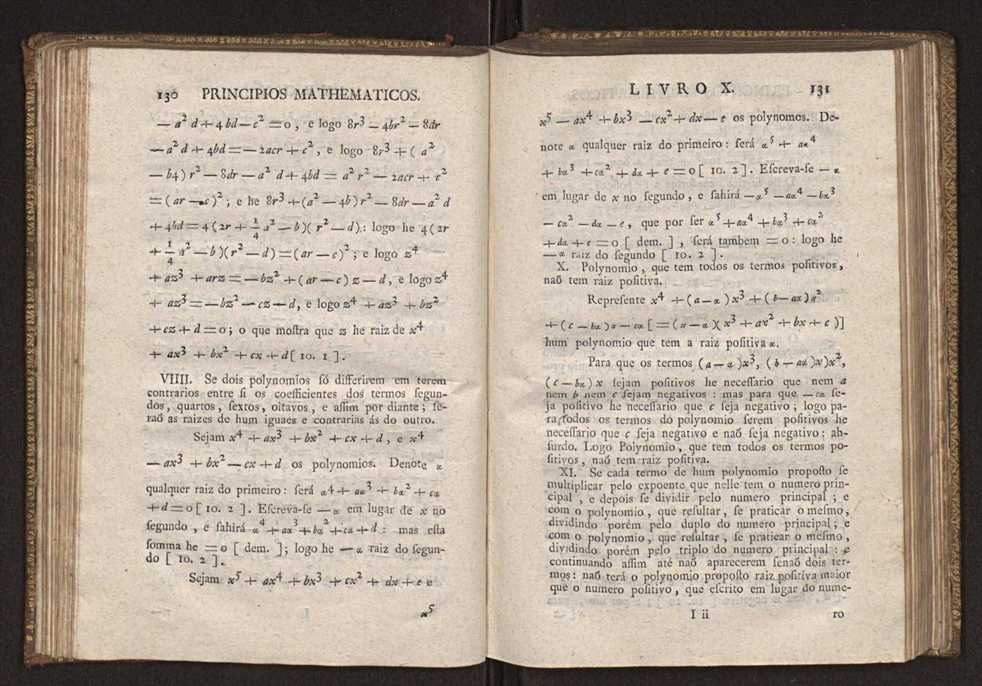 130 PRINCIPIOS MATHEMATICOS.
— a² d + 4bd — c² = 0, e logo 8r³ — 4br² — 8dr
— a² d + 4bd = — 2acr + c², e logo 8r³ + ( a²
— b4) r² — 8dr — a² d + 4bd = a² r² — 2acr + c²
= ( ar — c )²; e he 8r³ + (a² — 4b) r² — 8dr — a² d
+ 4bd = 4 ( 2r + ¼ a² — b )( r² — d ),: logo he 4 ( 2r
+ ¼ a² — b )( r² — d ) = ( ar — c )²; e logo z⁴
+ az³ + arz = — bz² + ( ar — c ) z — d, e logo z⁴
+ az³ = — bz² — cz — d, e logo z⁴ + az³ + bz²
+ cz + d = 0; o que moſtra que z he raiz de x⁴
+ ax³ + bx² + cx + d [ 10. 1 ].
VIIII. Se dois polynomios ſó differirem em terem
contrarios entre ſi os coefficientes dos termos ſegun-
dos, quartos, ſextos, oitavos, e aſſim por diante; ſe-
raõ as raizes de hum iguaes e contrarias ás do outro.
Sejam x⁴ + ax³ + bx² + cx + d, e x⁴
— ax³ + bx² — cx + d os polynomios. Denote α
qualquer raiz do primeiro: ſerá α⁴ + aα³ + bα² + cα
+ d = 0 [ 10. 2 ]. Eſcreva-ſe — α em lugar de x no
ſegundo, e ſahirá α⁴ + aα³ + bα² + cα + d: mas eſta
ſomma he = 0 [ dem. ]; logo he — α raiz do ſegun-
do [ 10. 2 ].
Sejam x⁵ + ax⁴ + bx³ + cx² + dx + e e
I
x⁵
LIVRO X. 131
x⁵ — ax⁴ + bx³ — cx² + dx — e os polynomos. De-
note α qualquer raiz do primeiro: ſerá α⁵ + aα⁴
+ bα³ + cα² + dα + e = 0 [ 10. 2 ]. Eſcreva-ſe — α
em lugar de x no ſegundo, e ſahirá — α⁵ — aα⁴ — bα³
— cα² — dα — e, que por ſer α⁵ + aα⁴ + bα³ + cα²
+ dα + e = 0 [ dem. ], ſerá tambem = 0: logo he
— α raiz do ſegundo [ 10. 2 ].
X. Polynomio, que tem todos os termos poſitivos,
naõ tem raiz poſitiva.
Repreſente x⁴ + ( a — α ) x³ + ( b — aα ) x²
+ ( c — bα ) x — cα [ = ( x — α )( x³ + ax² + bx + c )]
hum polynomio que tem a raiz poſitiva α.
Para que os termos ( a — α )x³, ( b — aα )x)x²,
( c — bα ) x ſejam poſitivos he neceſſario que nem a
nem b nem c ſejam negativos: mas para que — cα ſe-
ja poſitivo he neceſſario que c ſeja negativo; logo pa-
ra todos os termos do polynomio ſerem poſitivos he
neceſſario que c ſeja negativo e naõ ſeja negativo: ab-
ſurdo. Logo Polynomio, que tem todos os termos po-
ſitivos, naõ tem raiz poſitiva.
XI. Se cada termo de hum polynomio propoſto ſe
multiplicar pelo expoente que nelle tem o numero prin-
cipal, e depois ſe dividir pelo numero principal; e
com o polynomio, que reſultar, ſe praticar o meſmo,
dividindo porém pelo duplo do numero principal; e
com o polynomio, que reſultar, ſe praticar o meſmo,
dividindo porém pelo triplo do numero principal: e
continuando aſſim até naõ aparecerem ſenaõ dois ter-
mos: naõ terá o polynomio propoſto raiz poſitiva maior
que o numero poſitivo, que eſcrito em lugar do nume-
I ii
ro